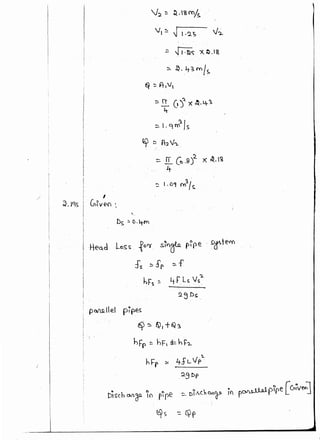 V₂ = 2.18 m/s
V₁ = √1.25 V₂
= √1.25 × 2.18
= 2.43 m/s
Q = A₁V₁
= π/4 (1)² × 2.43
= 1.9 m³/s
Q = A₂V₂
= π/4 (0.8)² × 2.18
= 1.09 m³/s
2. Ans Given :
Ds = 0.4m
Head Loss for single pipe system
fs = fp = f
hFs = 4fLsVs² / 2gDs
parallel pipes
Q = Q₁ + Q₂
hFp = hF₁ = hF₂
hFp = 4fLVp² / 2gDp
Discharge in pipe = Discharge in parallel pipe [Given]
Qs = Qp